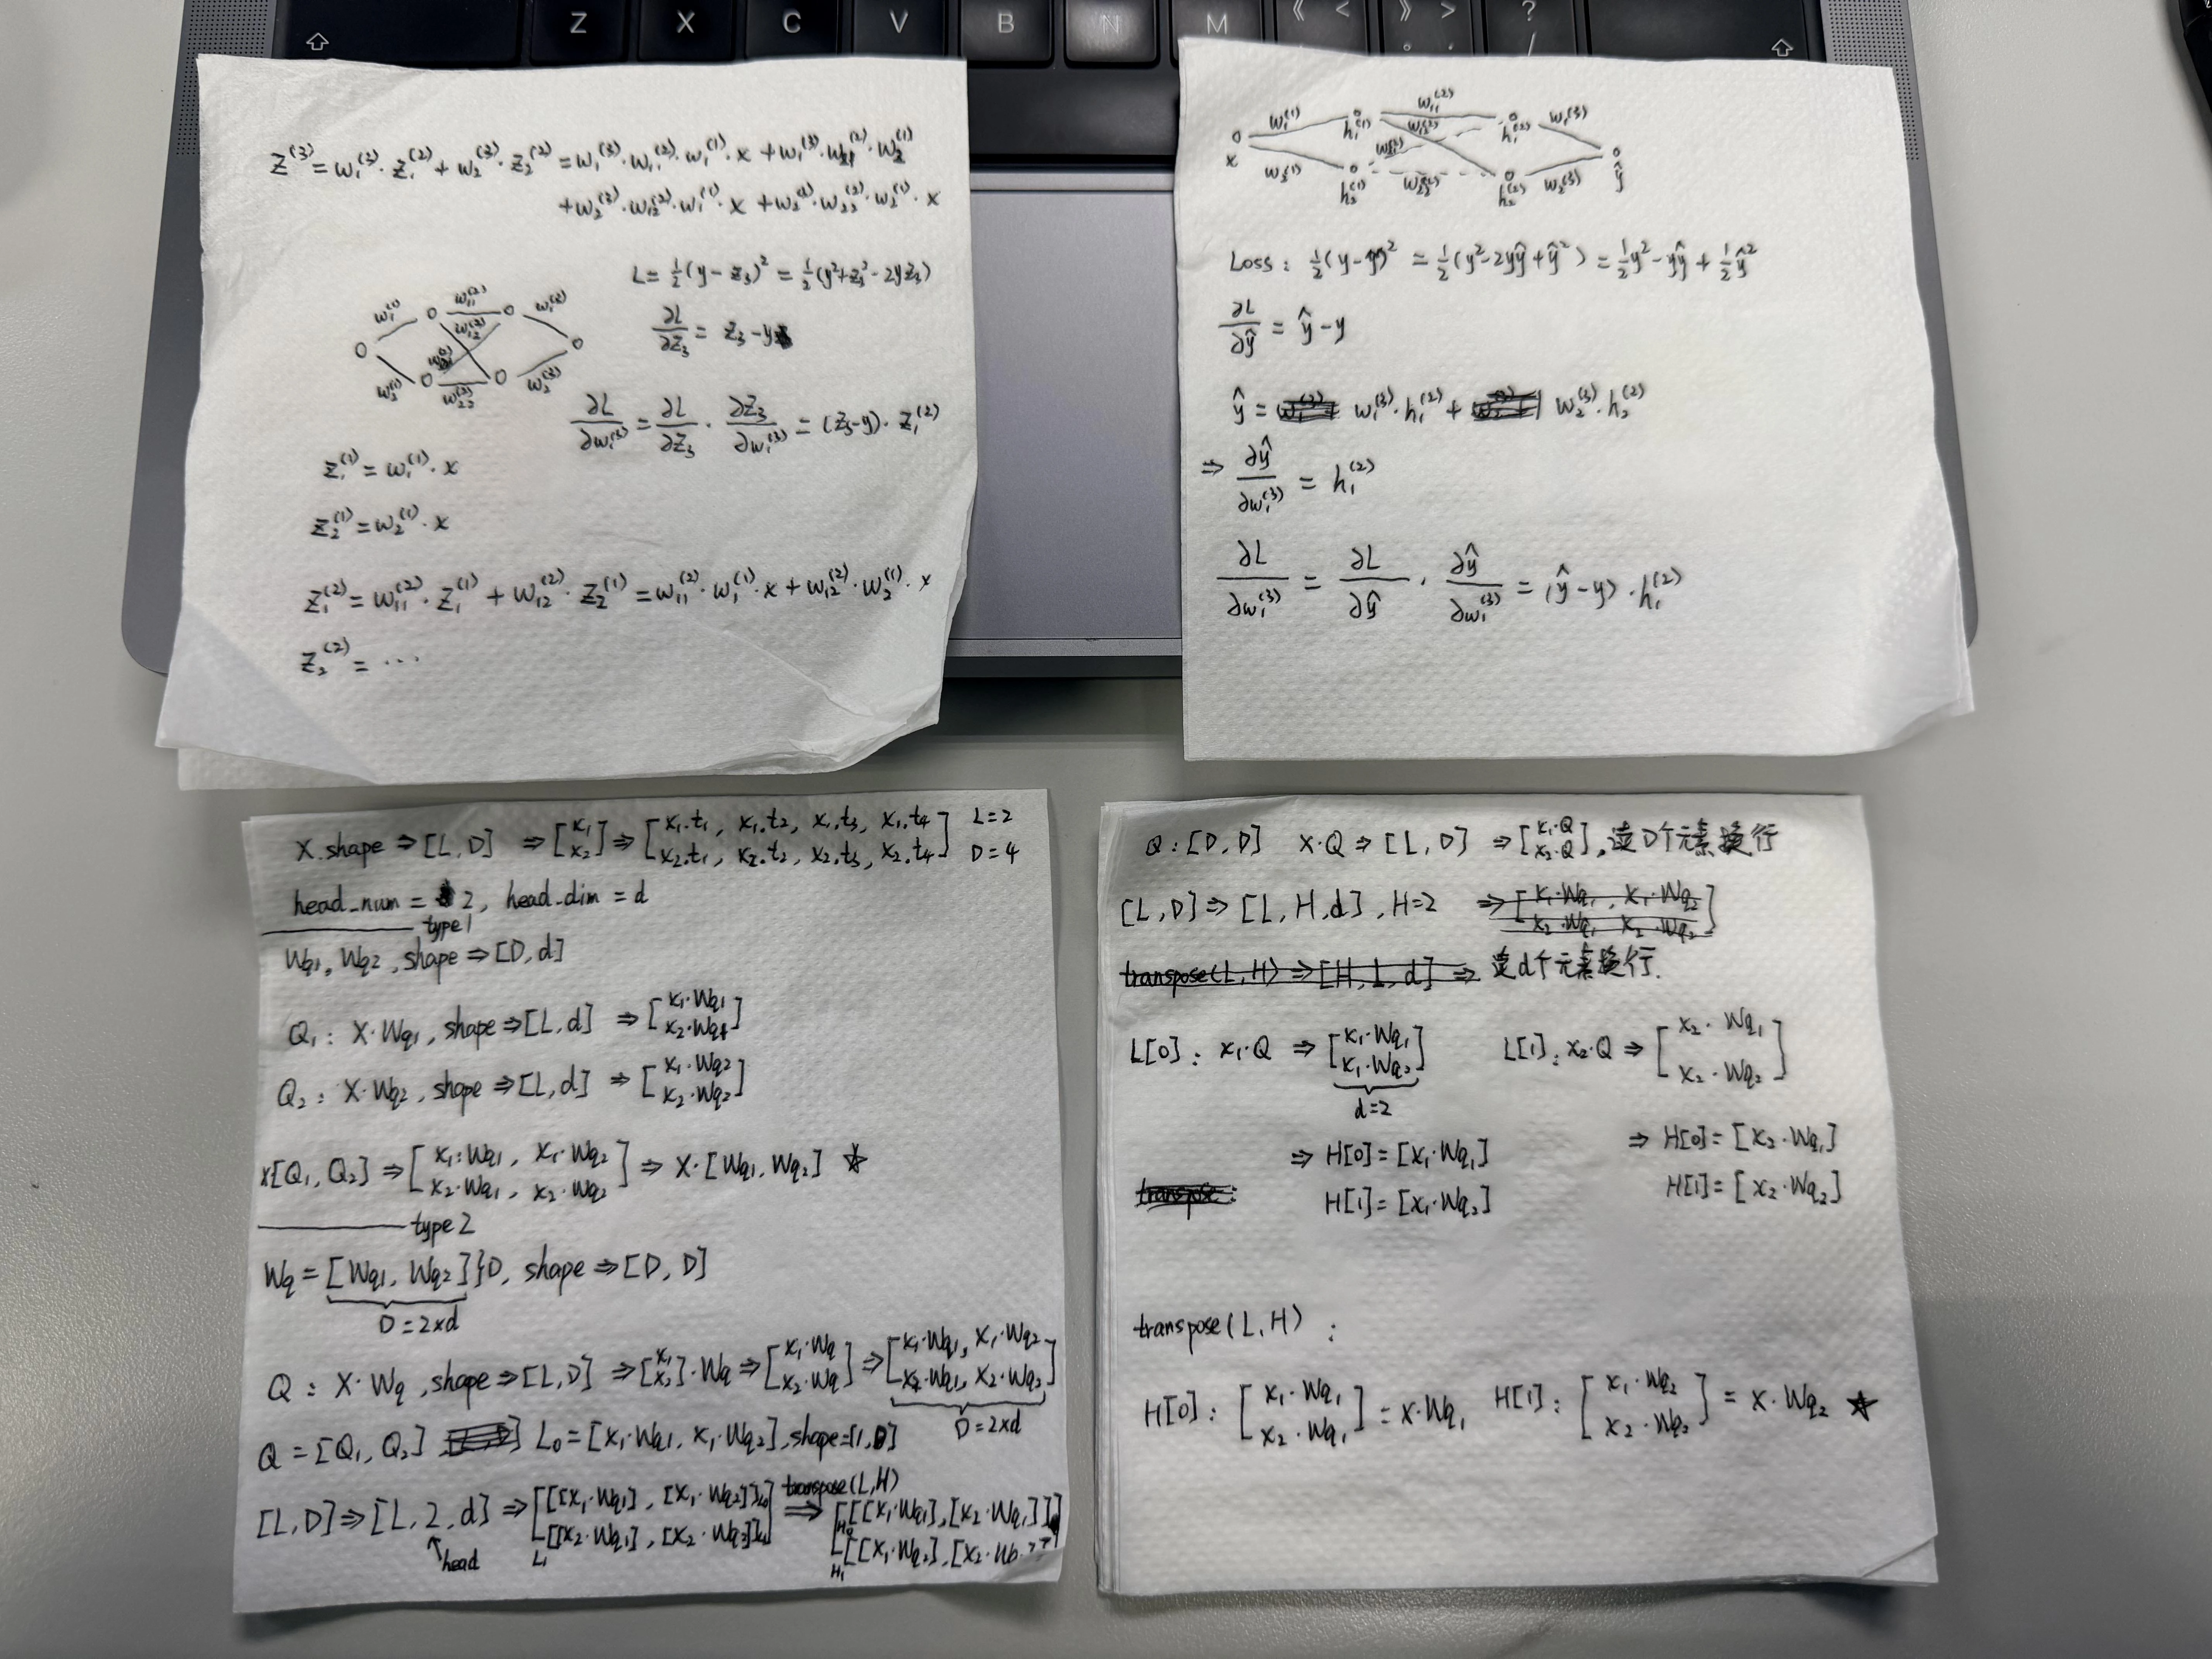 Z X C V B N M 《 < 》 > ? /
z^(3) = w₁^(3)·z₁^(2) + w₂^(3)·z₂^(2) = w₁^(3)·w₁₁^(2)·w₁^(1)·x + w₁^(3)·w₂₁^(2)·w₂^(1)
+w₂^(3)·w₁₂^(2)·w₁^(1)·x + w₂^(3)·w₂₂^(2)·w₂^(1)·x
L = ½(y - z₃)² = ½(y² + z₃² - 2yz₃)
w₁^(1) w₁₁^(2) w₁^(3)
w₁₂^(2)
w₂^(1) w₂₂^(2) w₂^(3)
∂L/∂z₃ = z₃ - y
∂L/∂w₁^(3) = ∂L/∂z₃ · ∂z₃/∂w₁^(3) = (z₃-y)·z₁^(2)
z₁^(1) = w₁^(1)·x
z₂^(1) = w₂^(1)·x
z₁^(2) = w₁₁^(2)·z₁^(1) + w₁₂^(2)·z₂^(1) = w₁₁^(2)·w₁^(1)·x + w₁₂^(2)·w₂^(1)·x
z₂^(2) = ···
w₁^(1) h₁^(1) w₁₁^(2) h₁^(2) w₁^(3)
x ŷ
w₂^(1) h₂^(1) w₂₂^(2) h₂^(2) w₂^(3)
Loss: ½(y-ŷ)² = ½(y²-2yŷ+ŷ²) = ½y² - yŷ + ½ŷ²
∂L/∂ŷ = ŷ - y
ŷ = w₁^(3)·h₁^(2) + w₂^(3)·h₂^(2)
⇒ ∂ŷ/∂w₁^(3) = h₁^(2)
∂L/∂w₁^(3) = ∂L/∂ŷ · ∂ŷ/∂w₁^(3) = (ŷ-y)·h₁^(2)
X.shape ⇒ [L,D] ⇒ [x₁ x₂] ⇒ [x₁.t₁, x₁.t₂, x₁.t₃, x₁.t₄ L=2
x₂.t₁, x₂.t₂, x₂.t₃, x₂.t₄] D=4
head_num = 2, head_dim = d
type1
Wq₁, Wq₂, shape ⇒ [D,d]
Q₁: X·Wq₁, shape ⇒ [L,d] ⇒ [x₁·Wq₁ x₂·Wq₁]
Q₂: X·Wq₂, shape ⇒ [L,d] ⇒ [x₁·Wq₂ x₂·Wq₂]
x[Q₁,Q₂] ⇒ [x₁·Wq₁, x₁·Wq₂ x₂·Wq₁, x₂·Wq₂] ⇒ X·[Wq₁, Wq₂] ☆
type2
Wq = [Wq₁, Wq₂]}D, shape ⇒ [D,D]
D=2×d
Q: X·Wq, shape ⇒ [L,D] ⇒ [x₁ x₂]·Wq ⇒ [x₁·Wq x₂·Wq] ⇒ [x₁·Wq₁, x₁·Wq₂ x₂·Wq₁, x₂·Wq₂]
D=2×d
Q = [Q₁,Q₂] L₀ = [x₁·Wq₁, x₁·Wq₂], shape=[1,D]
[L,D] ⇒ [L,2,d] ⇒ [[[x₁·Wq₁], [x₁·Wq₂]]L₀ transpose(L,H) ⇒ [H₀[[x₁·Wq₁],[x₂·Wq₁]]
↑head L₁[[x₂·Wq₁], [x₂·Wq₂]]] H₁[[x₁·Wq₂],[x₂·
Q: [D,D] X·Q ⇒ [L,D] ⇒ [x₁·Q x₂·Q], 读D个元素换行
[L,D] ⇒ [L,H,d], H=2 ⇒ [x₁·Wq₁, x₁·Wq₂
x₂·Wq₁ x₂·Wq₂]
transpose(L,H) ⇒ [H,L,d] ⇒ 读d个元素换行.
L[0]: x₁·Q ⇒ [x₁·Wq₁ x₁·Wq₂] L[1]: x₂·Q ⇒ [x₂·Wq₁ x₂·Wq₂]
d=2
⇒ H[0]=[x₁·Wq₁] ⇒ H[0]=[x₂·Wq₁]
transpose: H[1]=[x₁·Wq₂] H[1]=[x₂·Wq₂]
transpose(L,H):
H[0]: [x₁·Wq₁ x₂·Wq₁] = X·Wq₁ H[1]: [x₁·Wq₂ x₂·Wq₂] = X·Wq₂ ★